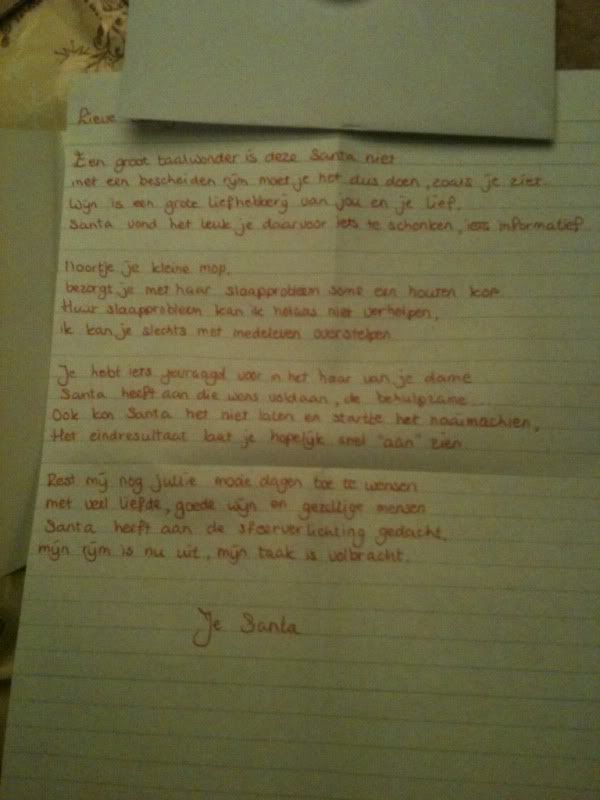 Lieve
Een groot taalwonder is deze Santa niet
met een bescheiden rijm moet je het dus doen, zoals je ziet.
Wijn is een grote liefhebberij van jou en je lief.
Santa vond het leuk je daarvoor iets te schenken, iets informatief
Noortje je kleine mop,
bezorgt je met haar slaapprobleem soms een houten kop
Haar slaapprobleem kan ik helaas niet verhelpen,
ik kan je slechts met medeleven overstelpen
Je hebt iets gevraagd voor in het haar van je dame
Santa heeft aan die wens voldaan, de behulpzame
Ook kon Santa het niet laten en startte het naaimachien,
Het eindresultaat laat je hopelijk snel "aan" zien
Rest mij nog jullie mooie dagen toe te wensen
met veel liefde, goede wijn en gezellige mensen
Santa heeft aan de sfeerverlichting gedacht.
mijn rijm is nu uit, mijn taak is volbracht.
Je Santa